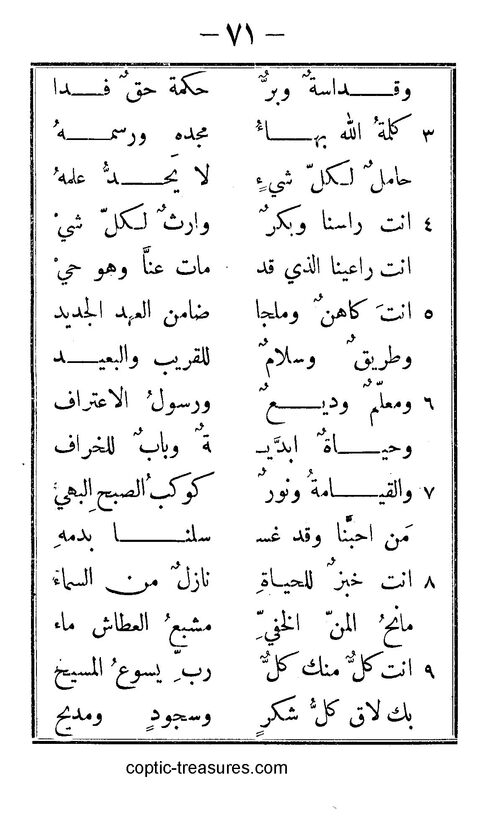 — ٧١ —
وقـداسةٌ وبرٌّ حكمة حقٌ فـدا
٣ كلمةُ الله بهـاءُ مجدهِ ورسمـهُ
حاملٌ لـكلّ شيءٍ لا يَحـدُّ علمهُ
٤ انت راسنا وبكرٌ وارثٌ لـكلّ شيْ
انت راعينا الذي قد مات عنَّا وهو حيْ
٥ انتَ كاهنٌ وملجاٌ ضامن العهد الجديد
وطريقٌ وسلامٌ للقريب والبعيـد
٦ ومعلّمٌ وديـعٌ ورسولُ الاعتراف
وحيـاةٌ ابديَّـ ـةٌ وبابٌ للخراف
٧ والقيـامةُ ونورٌ كوكبُ الصبح البهيْ
مَن احبَّنا وقد غسـ ـلنـا بدمهِ
٨ انت خبزٌ للحياةِ نازلٌ من السماءْ
مانحُ المنّ الخفيِّ مشبعُ العطاش ماء
٩ انت كلٌّ منك كلٌّ ربِّ يسوعُ المسيحْ
بك لاق كلُّ شكرٍ وسجودٍ ومديح
coptic-treasures.com